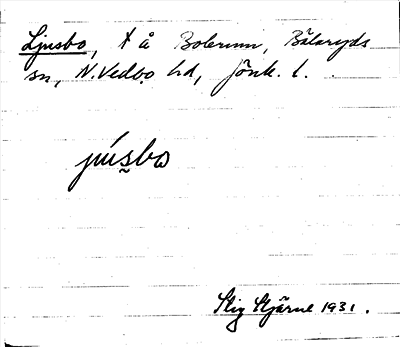 Ljusbo, t å Bolerum, Bälaryds
sn, N. Vedbo hd, Jönk. l.
jusbo
Stig Stjärne 1931.